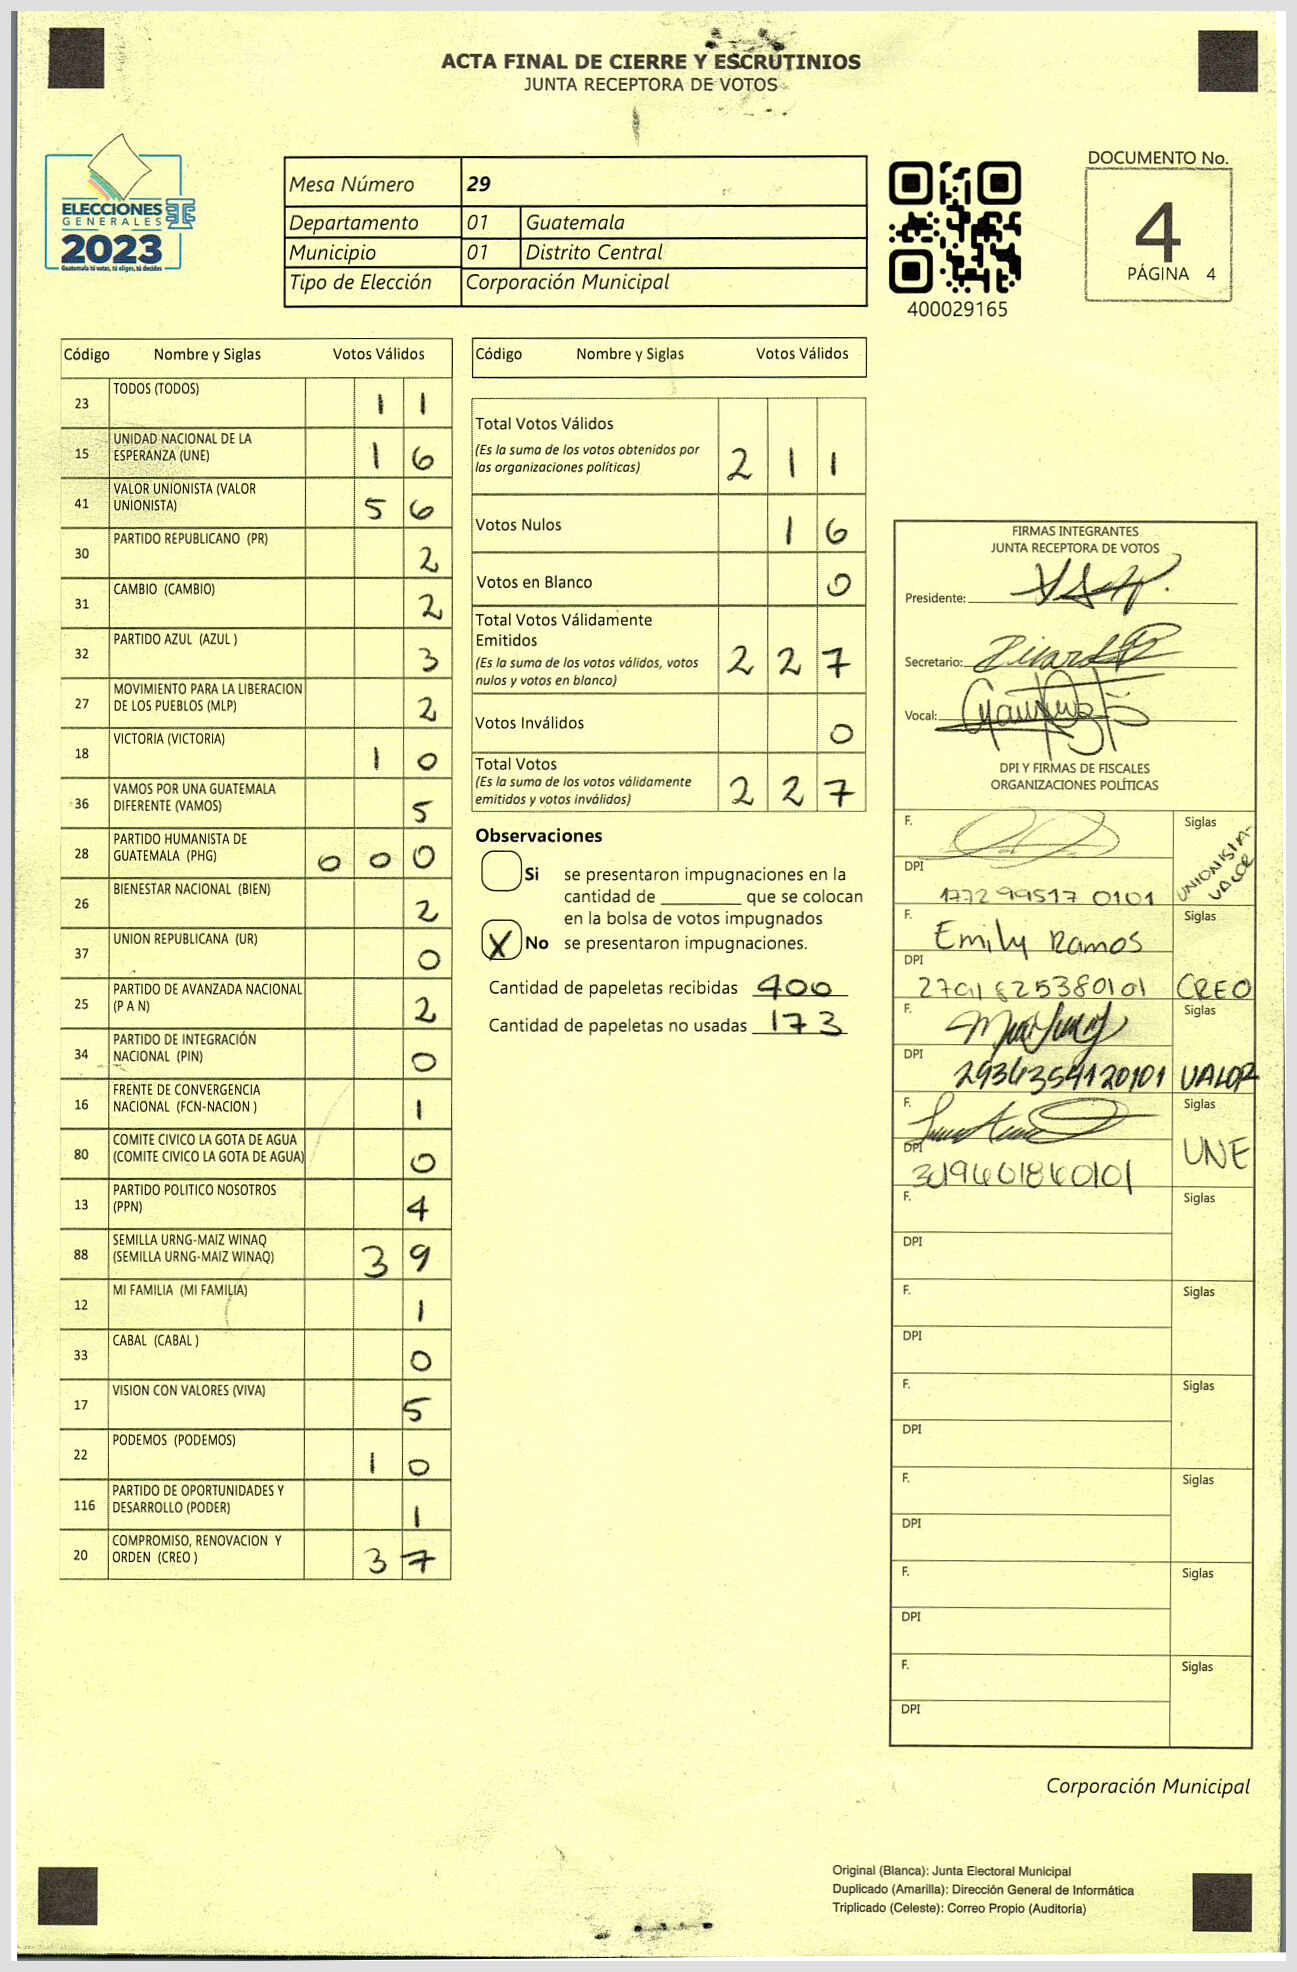 ACTA FINAL DE CIERRE Y ESCRUTINIOS
JUNTA RECEPTORA DE VOTOS
ELECCIONES
GENERALES
2023
Guatemala tú votas, tú eliges, tú decides
Mesa Número 29
Departamento 01 Guatemala
Municipio 01 Distrito Central
Tipo de Elección Corporación Municipal
400029165
DOCUMENTO No.
4
PÁGINA 4
Código Nombre y Siglas Votos Válidos
23 TODOS (TODOS) 1 1
15 UNIDAD NACIONAL DE LA
ESPERANZA (UNE) 1 6
41 VALOR UNIONISTA (VALOR
UNIONISTA) 5 6
30 PARTIDO REPUBLICANO (PR) 2
31 CAMBIO (CAMBIO) 2
32 PARTIDO AZUL (AZUL ) 3
27 MOVIMIENTO PARA LA LIBERACION
DE LOS PUEBLOS (MLP) 2
18 VICTORIA (VICTORIA) 1 0
36 VAMOS POR UNA GUATEMALA
DIFERENTE (VAMOS) 5
28 PARTIDO HUMANISTA DE
GUATEMALA (PHG) 0 0 0
26 BIENESTAR NACIONAL (BIEN) 2
37 UNION REPUBLICANA (UR) 0
25 PARTIDO DE AVANZADA NACIONAL
(P A N) 2
34 PARTIDO DE INTEGRACIÓN
NACIONAL (PIN) 0
16 FRENTE DE CONVERGENCIA
NACIONAL (FCN-NACION ) 1
80 COMITE CIVICO LA GOTA DE AGUA
(COMITE CIVICO LA GOTA DE AGUA) 0
13 PARTIDO POLITICO NOSOTROS
(PPN) 4
88 SEMILLA URNG-MAIZ WINAQ
(SEMILLA URNG-MAIZ WINAQ) 3 9
12 MI FAMILIA (MI FAMILIA) 1
33 CABAL (CABAL ) 0
17 VISION CON VALORES (VIVA) 5
22 PODEMOS (PODEMOS) 1 0
116 PARTIDO DE OPORTUNIDADES Y
DESARROLLO (PODER) 1
20 COMPROMISO, RENOVACION Y
ORDEN (CREO ) 3 7
Código Nombre y Siglas Votos Válidos
Total Votos Válidos
(Es la suma de los votos obtenidos por
las organizaciones políticas) 2 1 1
Votos Nulos 1 6
Votos en Blanco 0
Total Votos Válidamente
Emitidos
(Es la suma de los votos válidos, votos
nulos y votos en blanco) 2 2 7
Votos Inválidos 0
Total Votos
(Es la suma de los votos válidamente
emitidos y votos inválidos) 2 2 7
Observaciones
Si se presentaron impugnaciones en la
cantidad de ________ que se colocan
en la bolsa de votos impugnados
X No se presentaron impugnaciones.
Cantidad de papeletas recibidas 400
Cantidad de papeletas no usadas 173
FIRMAS INTEGRANTES
JUNTA RECEPTORA DE VOTOS
Presidente:
Secretario:
Vocal:
DPI Y FIRMAS DE FISCALES
ORGANIZACIONES POLÍTICAS
F. Siglas
UNIONISTA-
VALOR
DPI
1772 99517 0101
F. Emily Ramos Siglas
DPI
CREO
F. Siglas
DPI
2934354120101 VALOR
F. Siglas
UNE
DPI
F. Siglas
DPI
F. Siglas
DPI
F. Siglas
DPI
F. Siglas
DPI
F. Siglas
DPI
F. Siglas
DPI
Corporación Municipal
Original (Blanca): Junta Electoral Municipal
Duplicado (Amarilla): Dirección General de Informática
Triplicado (Celeste): Correo Propio (Auditoría)